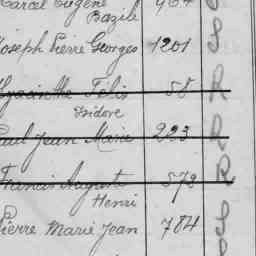 Marcel Eugène 964 S
Bazile
Joseph Pierre Georges 1201 S
Hyacinthe Félix 58 R
Isidore
Paul Jean Marie 223 R
Francis August 578 R
Henri
Pierre Marie Jean 784 S